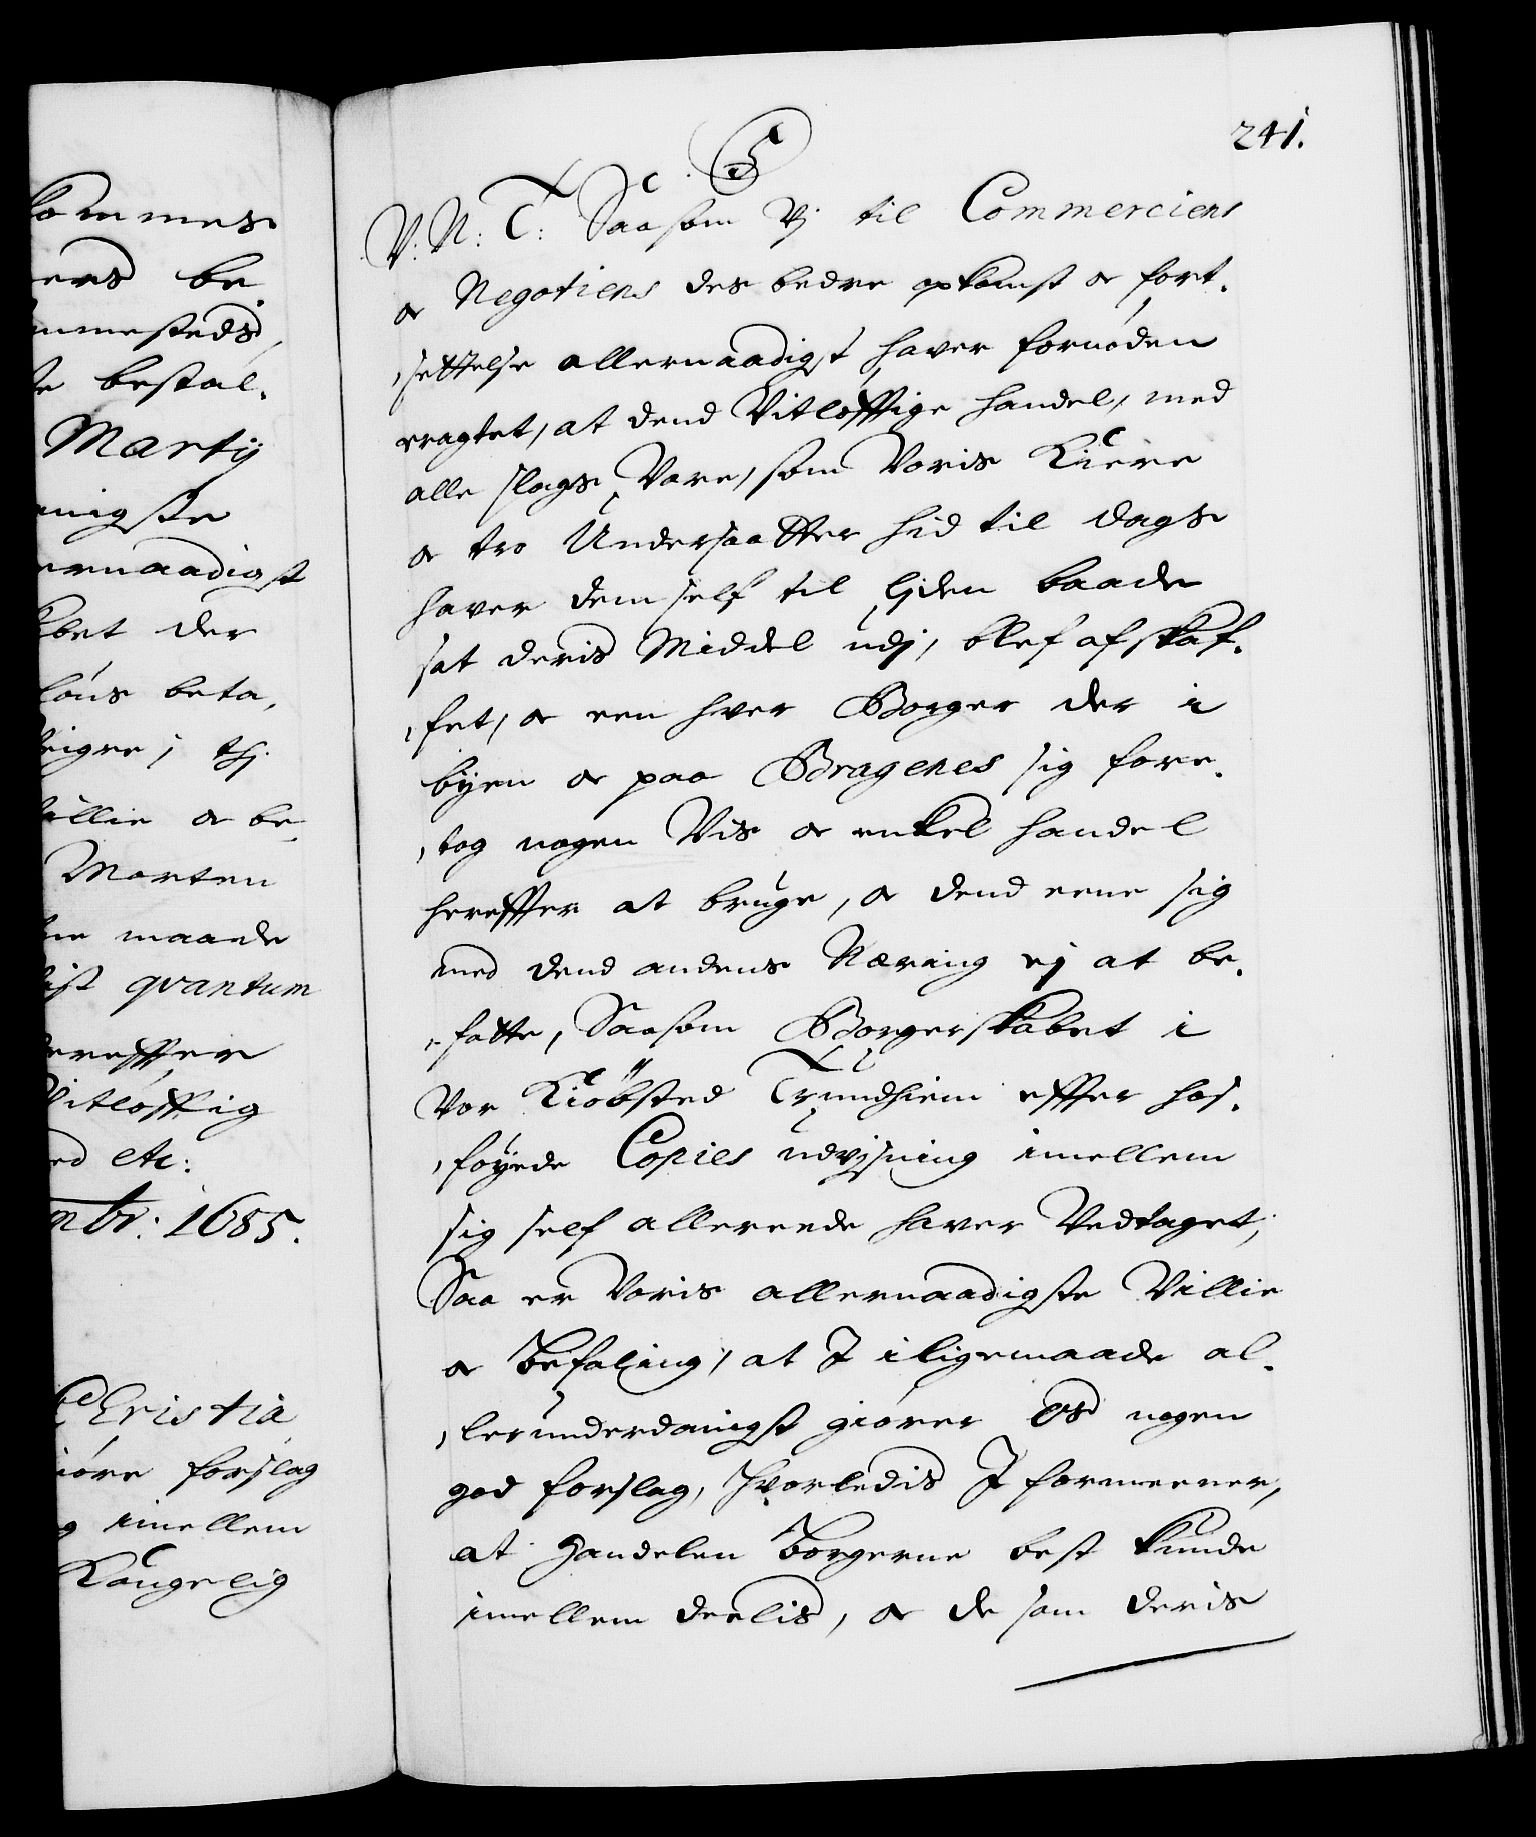 kommer
ers be
mmesteds,
te bestal,
Martij
nigste
ernaadigst
bet der
löns beta,
eigne; thj
villie oc be,
Morten
ne maade
ist qvantum
dereffter
Vitlöfftig
ed etc:
mbr: 1685.
Cristia
iöre forslag
g imellem
Kongelig
241.
C. 5
V: N: T: Saasom Vj til Commerciens
oc Negotiens des bedre opkomst oc fort,
,settelse allernaadigst haver fornöden
eragtet, at dend Vitlöfftige handel, med
alle slags Vare, som Voris Kiere
oc tro Undersaatter hid til dags
haver dem self til liden baade
sat deris Middel udj, blef afskaf,
,fet, oc een hver Borger der i
byen oc paa Bragenes sig fore,
,tog nogen Vis oc enkel handel
hereffter at bruge, oc dend eene sig
med dend andens Næring ej at be,
,fatte, Saasom Borgerskabet i
Vor Kiöbsted Trundhiem effter hos,
,föyede Copies udvjsning imellem
sig self allereede haver Vedtaget;
Saa er Voris allernaadigste Villie
oc Befaling, at I iligemaade al,
,lerunderdanigst giörer Os nogen
god forslag, hvorledis I formeener,
at Handelen Borgerne best kunde
imellem deelis, oc de som deris